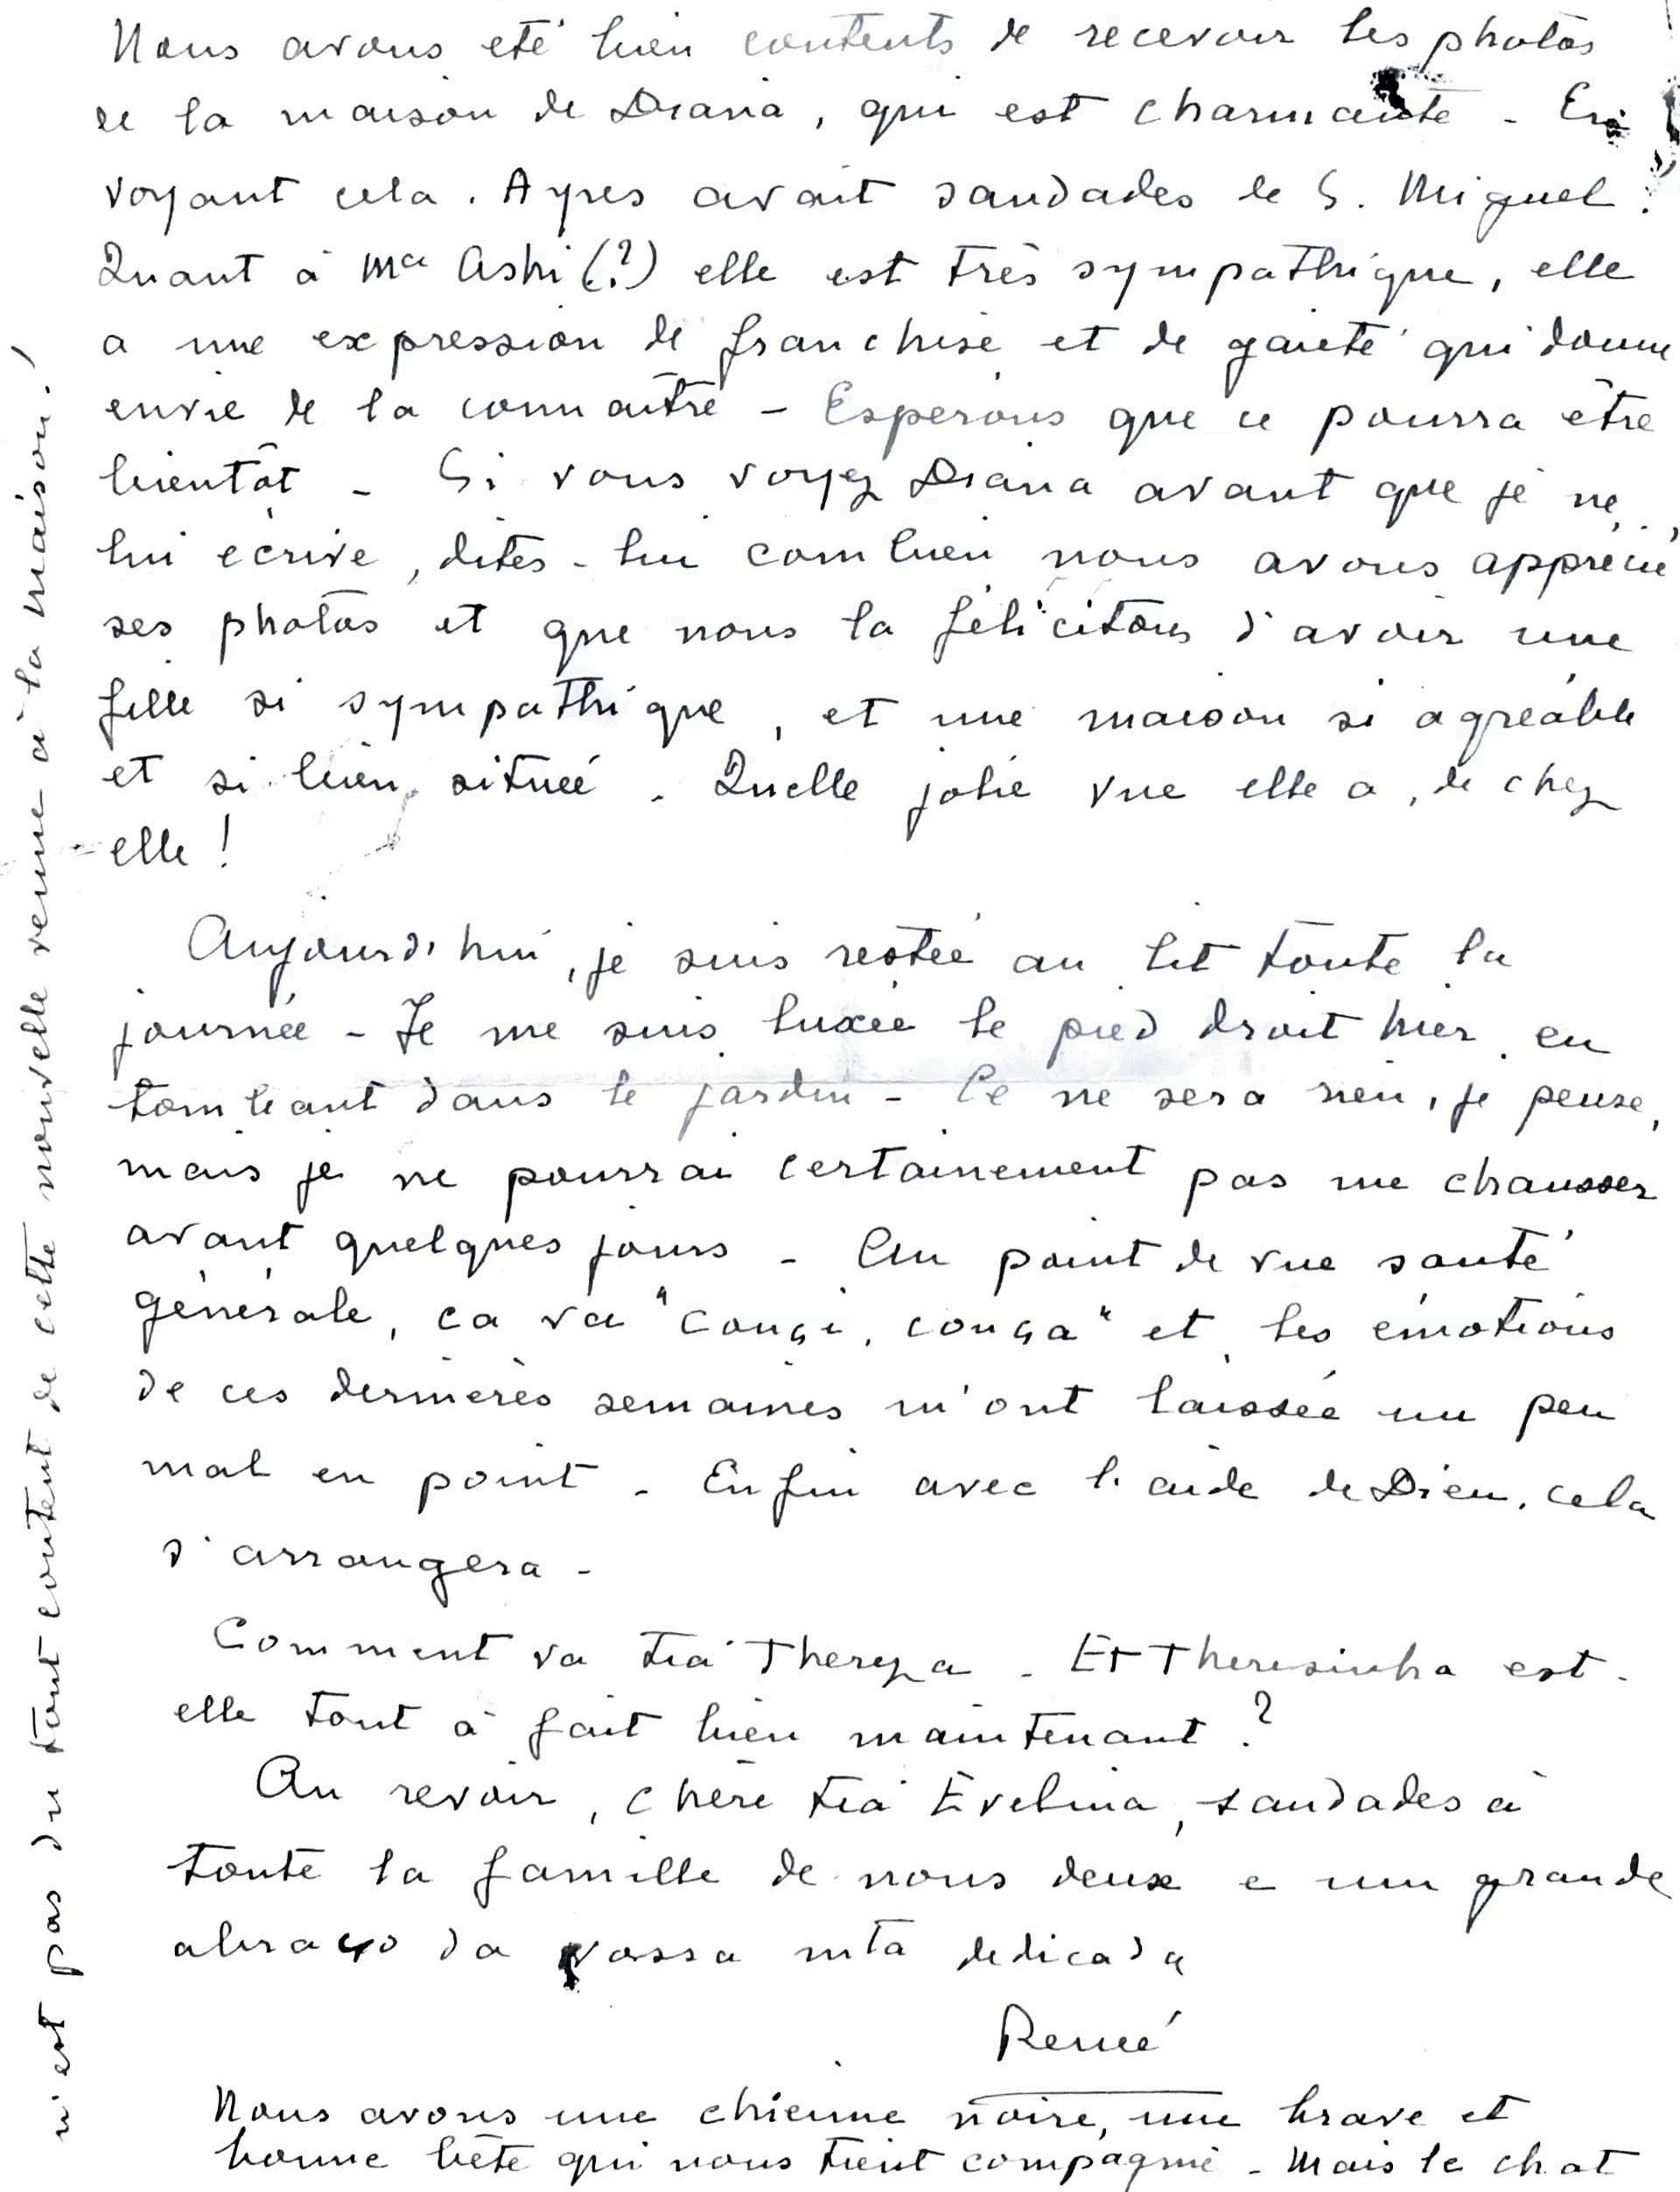 Nous avons eté bien contents de recevoir les photos
de la maison de Diana, qui est charmante - En
voyant cela. Ayres avait saudades de S. Miguel.
Quant à Ma Ashi (?) elle est très sympathique, elle
a une expression de franchise et de gaieté qui donne
envie de la connaître - Esperons que ce pourra être
bientôt - Si vous voyez Diana avant que je ne
lui ecrive, dites-lui combien nous avons apprécié
ses photos et que nous la félicitons d'avoir une
fille si sympathique, et une maison si agréable
et si bien située. Quelle jolie vue elle a, de chez
elle !
Aujourd'hui, je suis restée au lit toute la
journée - Je me suis luxée le pied droit hier en
tombant dans le jardin - Ce ne sera rien, je pense,
mais je ne pourrai certainement pas me chausser
avant quelques jours - Au point de vue santé
générale, ca va "couçi, couça" et les émotions
de ces dernières semaines m'ont laissée un peu
mal en point - Enfin avec l'aide de Dieu, cela
s'arrangera -
Comment va tia Thereza - Et Theresinha est-
elle tout à fait bien maintenant ?
Au revoir, chère tia Evelina, saudades à
toute la famille de nous deux e um grande
abraço da vossa mta dedicada
Renée
Nous avons une chienne noire, une brave et
bonne bête qui nous tient compagnie - Mais le chat
n'est pas du tout content de cette nouvelle venue à la maison !